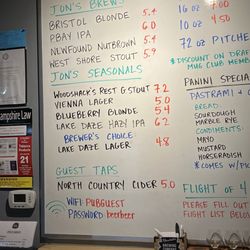 JON'S BREWS
BRISTOL BLONDE 5.4
PBAY IPA 6.0
NEWFOUND NUTBROWN 5.4
WEST SHORE STOUT 5.9
JON'S SEASONALS
WOODSHACK'S REST G.STOUT 7.2
VIENNA LAGER 5.0
BLUEBERRY BLONDE 5.4
LAKE DAZE HAZY IPA 6.2
BREWER'S CHOICE
LAKE DAZE LAGER 4.8
GUEST TAPS
NORTH COUNTRY CIDER 5.0
WIFI PUBGUEST
PASSWORD beerbeer
16 OZ 7.00
10 OZ 4.50
72 OZ PITCHE
DISCOUNT ON DRAF
MUG CLUB MEMBE
PANINI SPECIA
PASTRAMI +
BREAD:
SOURDOUGH
MARBLE RYE
CONDIMENTS:
MAYO
MUSTARD
HORSERADISH
*COMES W/PIC
FLIGHT OF
PLEASE FILL OUT
FLIGHT LIST BELO
mpshire Law